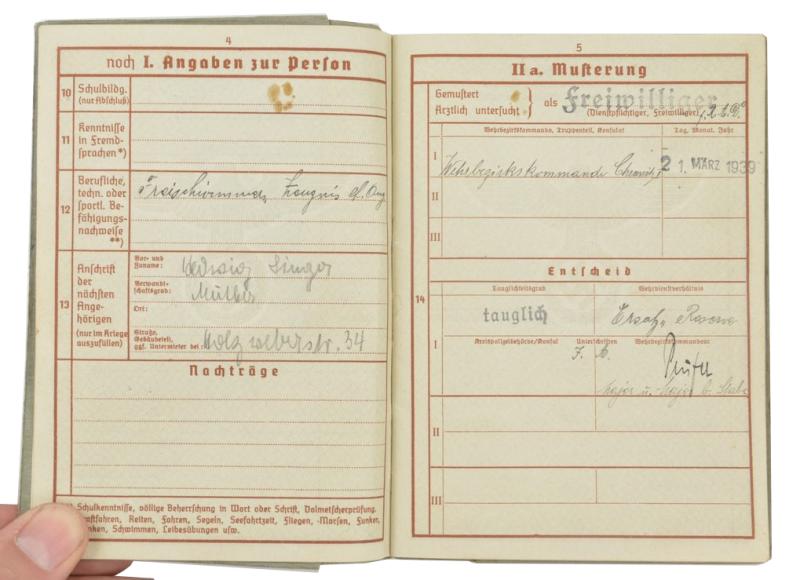 4
noch I. Angaben zur Person
10 Schulbildg.
(nur Abschluß)
11 Kenntnisse
in Fremd-
sprachen*)
12 Berufliche,
techn. oder
sportl. Be-
fähigungs-
nachweise
**)
Freischwimmer Zeugnis
13 Anschrift
der
nächsten
Ange-
hörigen
(nur im Kriege
auszufüllen)
Vor- und
Zuname: Hedwig Singer
Verwandt-
schaftsgrad: Mutter
Ort:
Straße,
Gebäudeteil,
ggf. Untermieter bei: Holzweberstr. 34
Nachträge
Schulkenntnisse, völlige Beherrschung in Wort oder Schrift, Dolmetscherprüfung.
Reiten, Fahren, Segeln, Seefahrtzeit, Fliegen, -Morsen, Funker,
Schwimmen, Leibesübungen usw.
5
IIa. Musterung
Gemustert
Ärztlich untersucht } als Freiwilliger
(Dienstpflichtiger, Freiwilliger)
Wehrbezirkskommando, Truppenteil, Konsulat Tag, Monat, Jahr
I Wehrbezirkskommando Chemnitz 21. MÄRZ 1939
II
III
14
Entscheid
Tauglichkeitsgrad Wehrdienstverhältnis
I tauglich Ersatz Reserve
Kreispolizeibehörde/Konsul Unterschriften Wehrbezirkskommandeur
Major
II
III